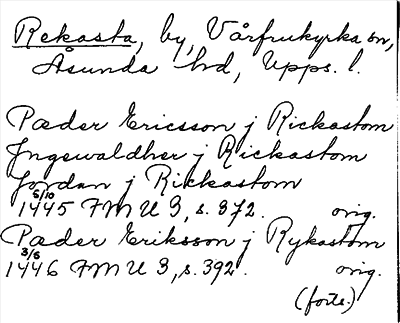 Rekasta, by, Vårfrukyrka sn,
Åsunda hd, Upps. l.
Pæder Ericsson j Rickastom
Jngewaldher j Rickastom
Jordan j Rickastom
5/10 1445 FMU 3, s. 372. orig.
Pæder Eriksson j Rykastom
3/5 1446 FMU 3, s. 392. orig.
(forts.)